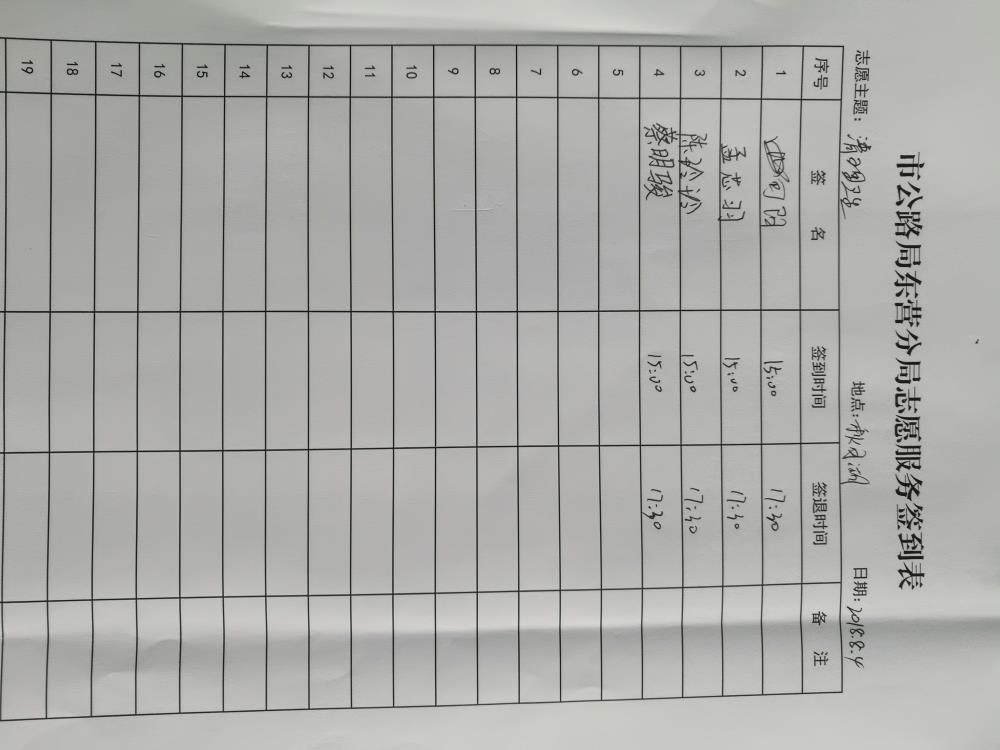 市公路局东营分局志愿服务签到表
志愿主题： 地点: 日期: 2018.8.4
序号 签名 签到时间 签退时间 备注
1 15:00 17:30
2 孟芯羽 15:00 17:30
3 陈 15:00 17:30
4 蔡明骏 15:00 17:30
5
6
7
8
9
10
11
12
13
14
15
16
17
18
19